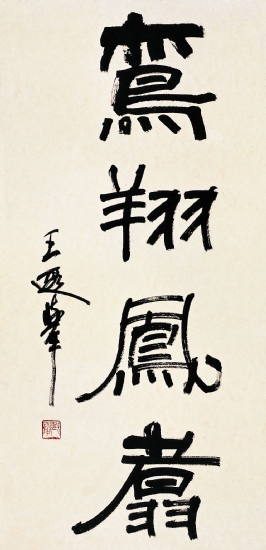 鵉翔鳳翥
王遐舉